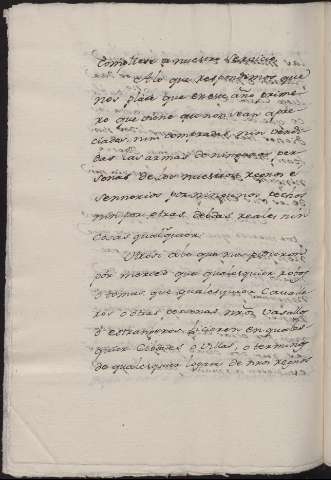 Como fuere a nuestro servicio
A lo que respondemos que
nos plaçe que en este año prime
ro que viene que non sean apre
ciadas, nin compradas nin vendi
das las armas de ningunas per
sonas de los nuestros regnos e
sennorios por ningunos pechos
nin por otras debdas reales nin
cosas qualesquier
Otrosi a lo que nos pidieron
por merced que qualesquier robos
o tomas que qualesquier Cavalle
ros o otras personas nros Vasallos
o estrangeros ficieren en quales
quier Cibdades o Villas, o terminos
de qualesquier logares de nros regnos